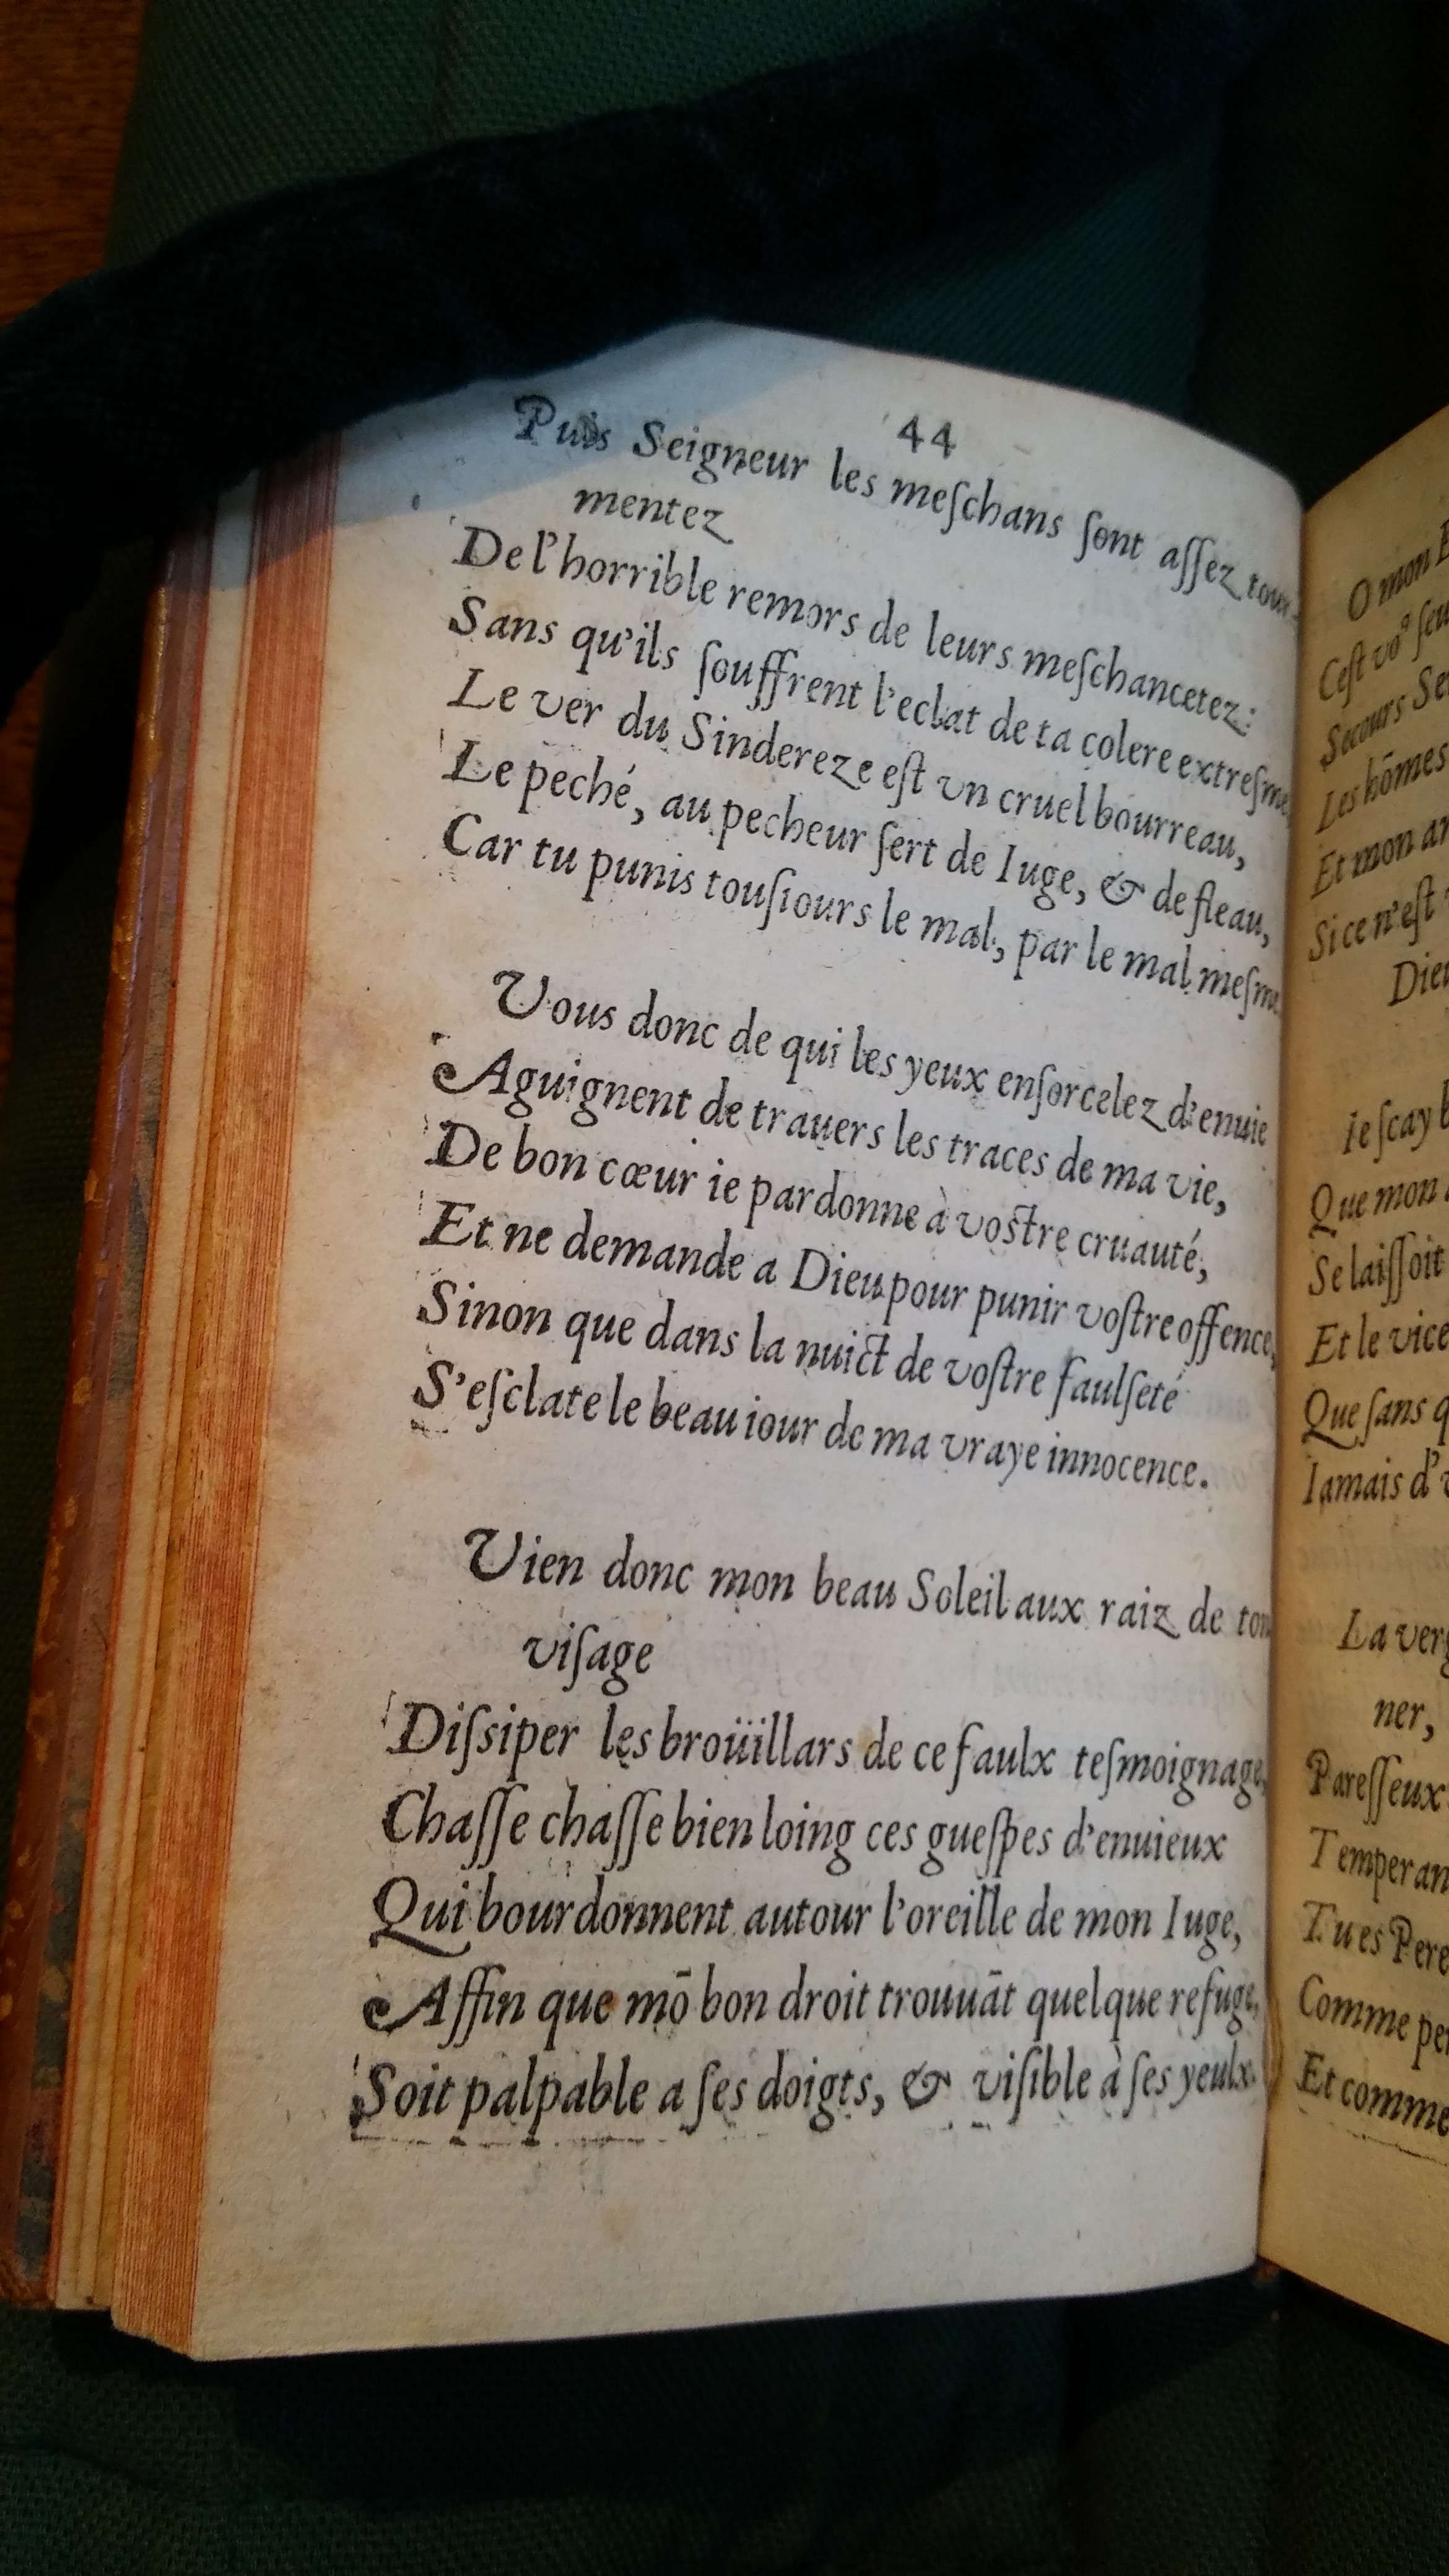 44
Puis Seigneur les meſchans ſont aſſez tour-
mentez
De l'horrible remors de leurs meſchancetez:
Sans qu'ils ſouffrent l'eclat de ta colere extreſme
Le ver du Sindereze eſt vn cruel bourreau,
Le peché, au pecheur ſert de Iuge, & de fleau,
Car tu punis touſiours le mal, par le mal meſme
Vous donc de qui les yeux enſorcelez d'enuie
Aguignent de trauers les traces de ma vie,
De bon cœur ie pardonne à voſtre cruauté,
Et ne demande a Dieu pour punir voſtre offence,
Sinon que dans la nuict de voſtre faulſeté
S'eſclate le beau iour de ma vraye innocence.
Vien donc mon beau Soleil aux raiz de ton
viſage
Diſsiper les broüillars de ce faulx teſmoignage,
Chaſſe chaſſe bien loing ces gueſpes d'enuieux
Qui bourdonnent autour l'oreille de mon Iuge,
Affin que mō bon droit trouuāt quelque refuge,
Soit palpable a ſes doigts, & viſible à ſes yeulx.
O mon
C'eſt vo⁹ ſeu
Secours Se
Les hōmes
Et mon ar
Si ce n'eſt
Dieu
Ie ſcay b
Que mon
Se laiſſoit
Et le vice
Que ſans q
Iamais d'v
La verg
ner,
Pareſſeux
Temperan
Tu es Pere
Comme per
Et comme